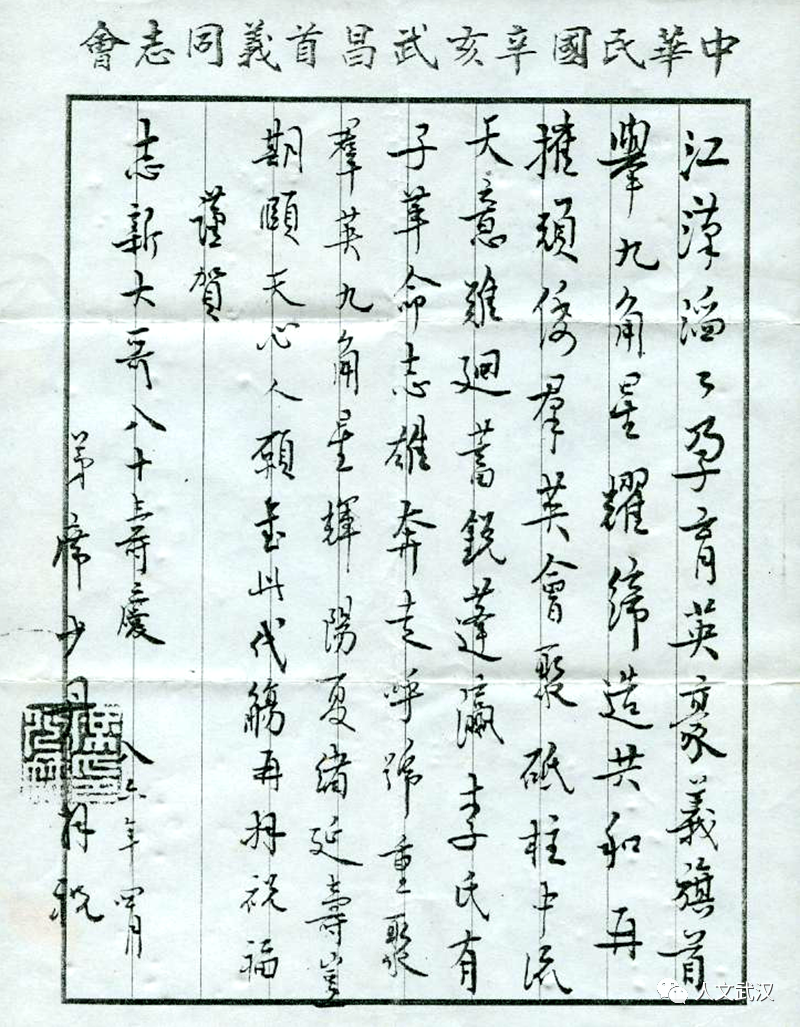 中華民國辛亥武昌首義同志會
江漢滔々孕育英豪義旗首
舉九角星耀締造共和再
摧頑倭羣英會聚砥柱中流
天意難迴蓄銳蓬瀛李氏有
子革命志雄奔走呼號重聚
羣英九角星輝陽夏緒延壽岂
期頤天心人願書此代觴再拜祝福
謹賀
志新大哥八十壽慶
弟席少丹拜祝
八六年四月
人文武汉